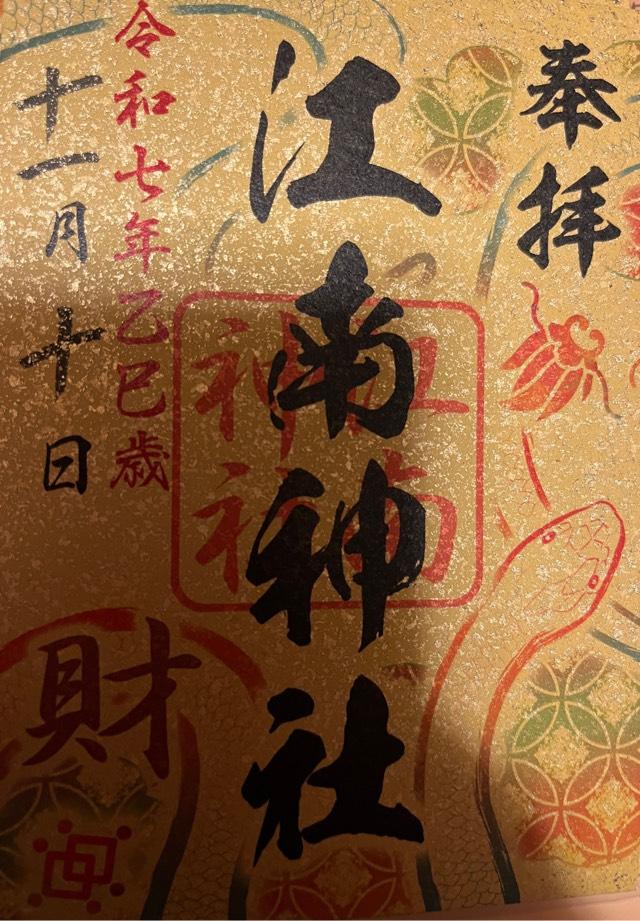 奉拝
江南神社
江南
神社
令和七年乙巳歳
十一月十日
財